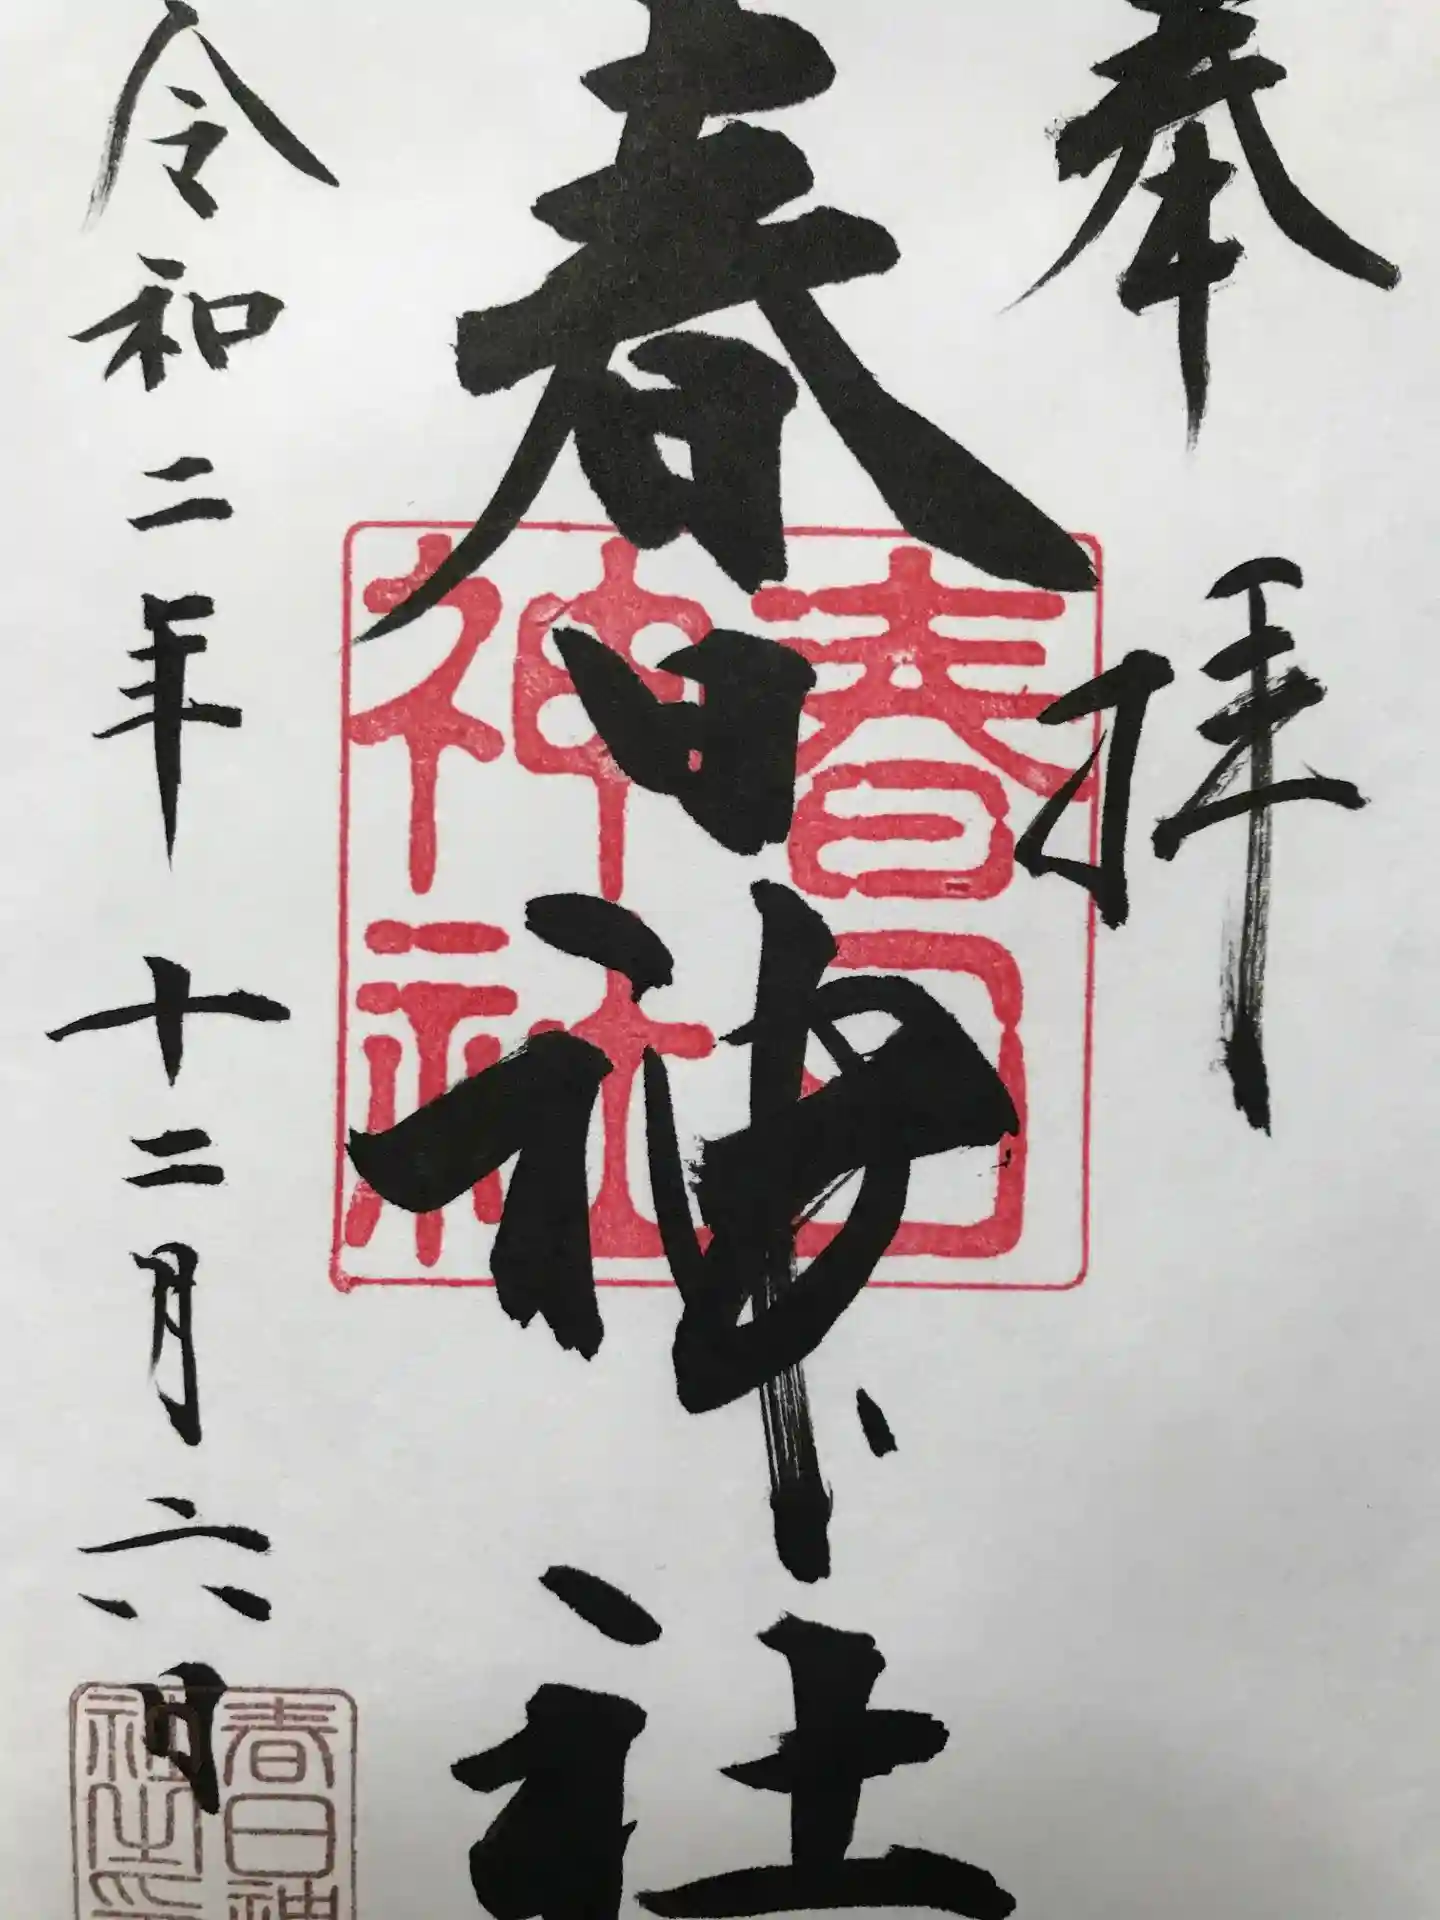 奉拝
春日神社
春日神社
令和二年十二月六日
春日神社之印